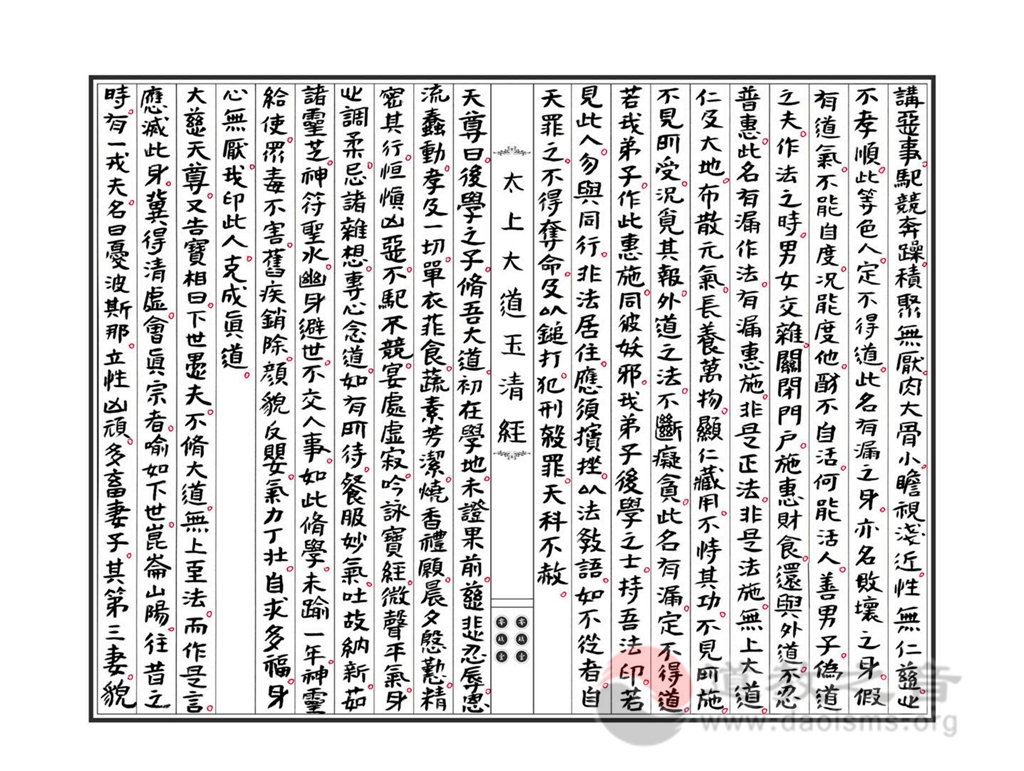 講惡事。馳競奔躁。積聚無厭。肉大骨小。瞻視淺近。性無仁慈。此
不孝順。此等色人。定不得道。此名有漏之身。亦名敗壞之身。假
有道氣。不能自度。況能度他。酧不自活。何能活人。善男子。偽道
之夫。作法之時。男女交雜。關閉門戶。施惠財食。還與外道。不忍
普惠。此名有漏作法。有漏惠施。非是正法。非是法施。無上大道。
仁及大地。布散元氣。長養萬物。顯仁藏用。不恃其功。不見所施。
不見所受。況覓其報。外道之法。不斷癡貪。此名有漏。定不得道。
若我弟子。作此惠施。同彼妖邪。我弟子後學之士。持吾法印。若
見此人。勿與同行。非法居住。應須擯挫。以法教語。如不從者。自
天罪之。不得奪命。及以鎚打。犯刑殺罪。天科不赦。
太上大道玉清經
天尊曰。後學之子。脩吾大道。初在學地。未證果前。慈悲忍辱。恩
流蠢動。孝及一切。單衣菲食。蔬素芳潔。燒香禮願。晨夕慇懃。精
密其行。恒慎凶惡。不馳不競。宴處虛寂。吟詠寶經。微聲平氣。身
心調柔。忌諸雜想。專心念道。如有所待。餐服妙氣。吐故納新。茹
諸靈芝。神符聖水。幽身避世。不交人事。如此脩學。未踰一年。神靈
給使。眾毒不害。舊疾銷除。顏貌反嬰。氣力丁壯。自求多福。身
心無厭。我印此人。克成真道。
大慈天尊。又告寶相曰。下世愚夫。不脩大道。無上至法。而作是言。
應滅此身。冀得清虛。會真宗者。喻如下世崑崙山陽。往昔之
時。有一戎夫。名曰憂波斯那。立性凶頑。多畜妻子。其第三妻。貌
道教之音
www.daoisms.org